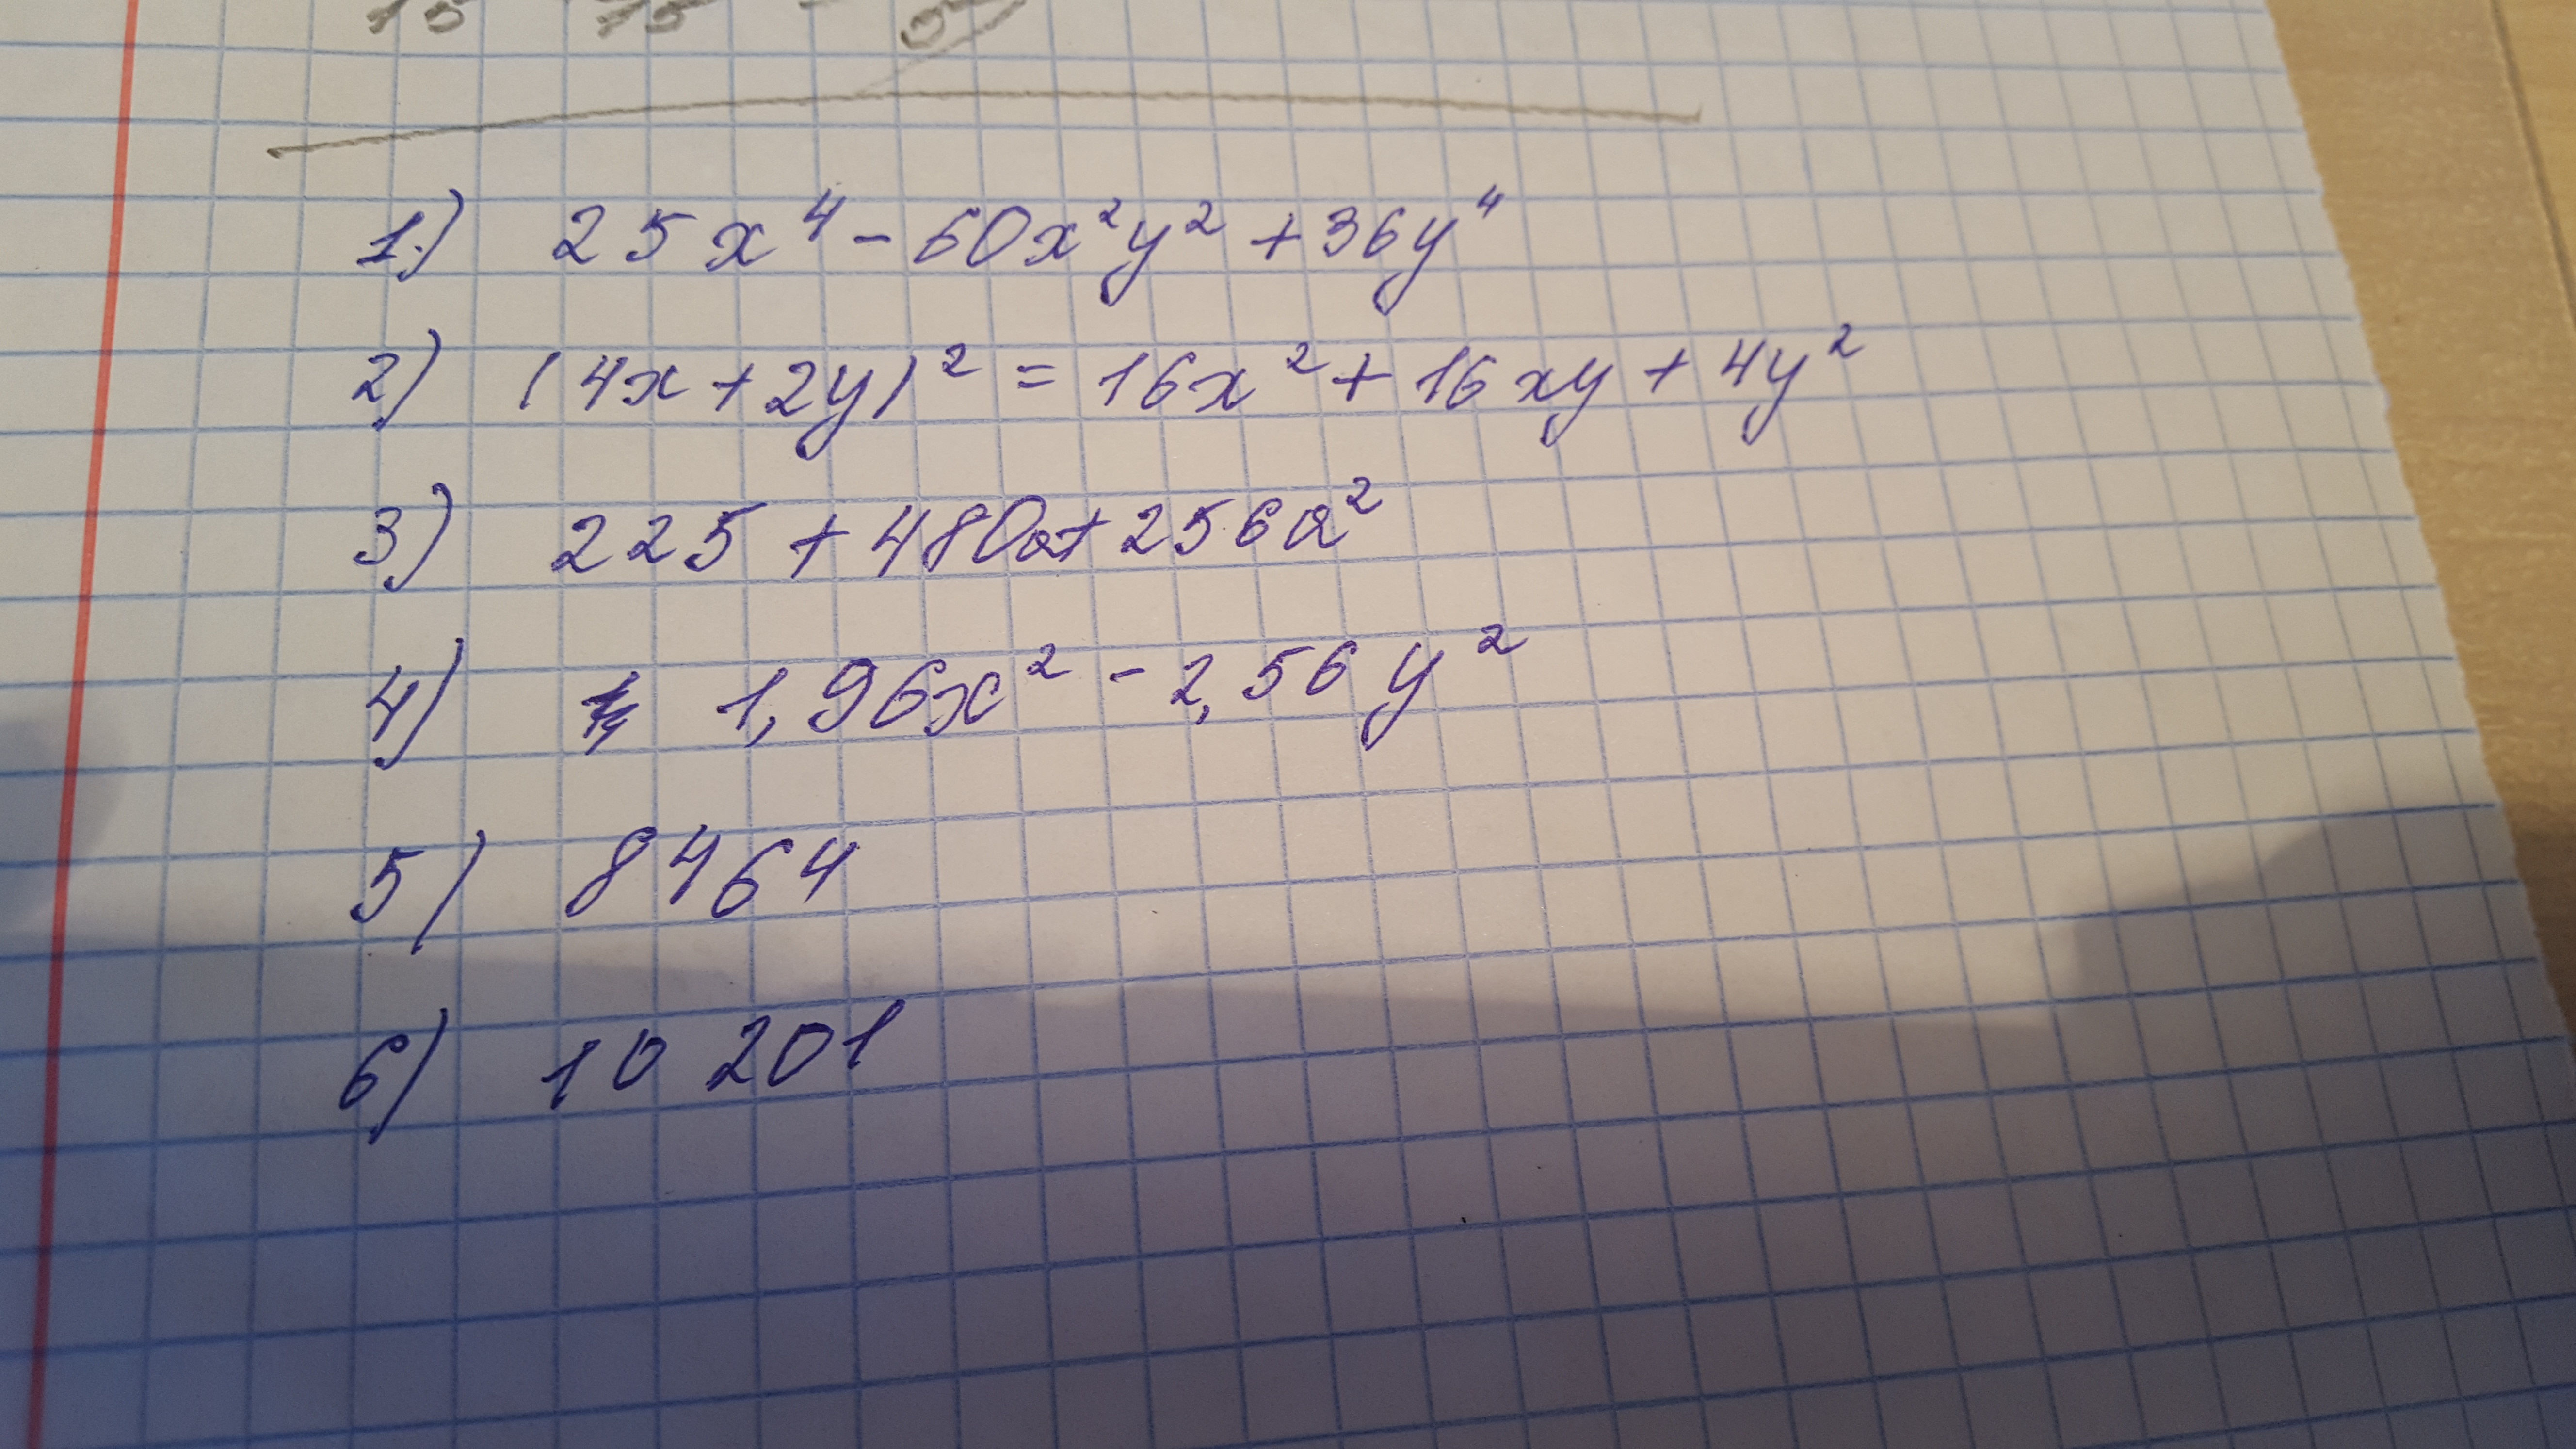 15 15
1.) 25x⁴ - 60x²y² + 36y⁴
2) (4x + 2y)² = 16x² + 16xy + 4y²
3) 225 + 480a + 256a²
4) 1,96x² - 2,56y²
5) 8464
6) 10 201